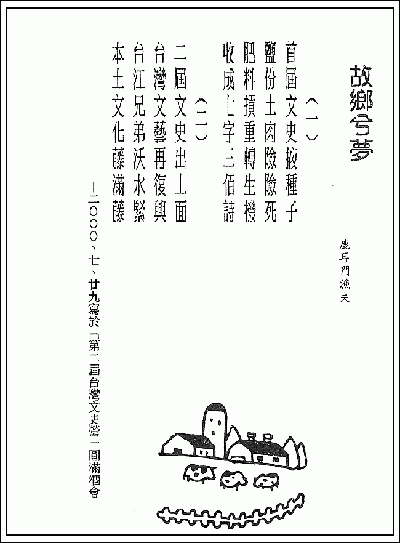 故鄉兮夢
鹿耳門漁夫
(一)
首屆文史掖種子
鹽份土肉險險死
肥料摃重轉生機
收成七字三佰詩
(二)
二屆文史出土面
台灣文藝再復興
台江兄弟沃水緊
本土文化藤滿藤
—二○○○、七、廿九寫於「第二屆台灣文史營」圓滿酒會